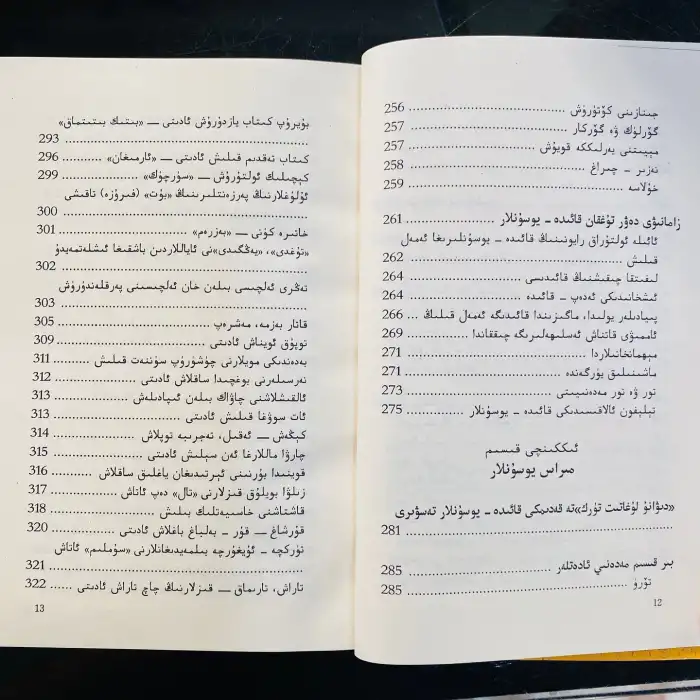 جىنازىنى كۆتۈرۈش ........ 256
گۆرلۈك ۋە گۆركار ........ 257
مېيىتنى يەرلىككە قويۇش ........ 257
نەزىر - چىراغ ........ 258
خۇلاسە ........ 259
زامانىۋى دەۋر تۇغقان قائىدە - يوسۇنلار ........ 261
ئائىلە ئولتۇراق رايونىنىڭ قائىدە - يوسۇنلىرىغا ئەمەل
قىلىش ........ 262
لىفىتقا چىقىشنىڭ قائىدىسى ........ 264
ئىشخانىدىكى ئەدەپ - قائىدە ........ 264
پىيادىلەر يولىدا، ماگىزىندا قائىدىگە ئەمەل قىلىڭ ... 266
ئاممىۋى قاتناش ئەسلىھەلىرىگە چىققاندا ........ 269
مېھمانخانىلاردا ........ 271
ماشىنىلىق يۈرگەندە ........ 271
تور ۋە تور مەدەنىيىتى ........ 273
تېلېفون ئالاقىسىدىكى قائىدە - يوسۇنلار ........ 275
ئىككىنچى قىسىم
مىراس يوسۇنلار
«دىۋانۇ لۇغاتىت تۈرك»تە قەدىمكى قائىدە - يوسۇنلار تەسۋىرى
........ 281
بىر قىسىم مەدەنىي ئادەتلەر ........ 285
تۆرۈ ........ 285
12
بۇيرۇپ كىتاب يازدۇرۇش ئادىتى — «بىتىك بىتىتماق»
........ 293
كىتاب تەقدىم قىلىش ئادىتى — «ئارمىغان» ........ 296
كېچىلىك ئولتۇرۇش — «سۈرچۈك» ........ 299
ئۇلۇغلارنىڭ پەرزەنتلىرىنىڭ «بۇت» (فىرۇزە) تاقىشى
........ 300
خاتىرە كۈنى — «بەزرەم» ........ 301
«تۇغدى»، «يەڭگىدى»نى ئاياللاردىن باشقىغا ئىشلەتمەيدۇ
........ 302
تەڭرى ئەلچىسى بىلەن خان ئەلچىسىنى پەرقلەندۈرۈش
........ 303
قاتار بەزمە، مەشرەپ ........ 305
توپۇق ئويناش ئادىتى ........ 309
بەدەندىكى مويلارنى چۈشۈرۈپ سۈننەت قىلىش ........ 311
نەرسىلەرنى بوغچىدا ساقلاش ئادىتى ........ 312
ئالقىشلاشنى چاۋاك بىلەن ئىپادىلەش ........ 313
ئات سوۋغا قىلىش ئادىتى ........ 313
كېڭەش — ئەقىل، تەجرىبە توپلاش ........ 314
چارۋا ماللارغا ئەن سېلىش ئادىتى ........ 315
قوينىدا بۇرنىنى ئېرتىدىغان ياغلىق ساقلاش ........ 316
زىلۋا بويلۇق قىزلارنى «تال» دەپ ئاتاش ........ 317
قاشتاشنى خاسىيەتلىك بىلىش ........ 318
قۇرشاغ — قۇر - بەلباغ باغلاش ئادىتى ........ 320
تۈركچە - ئۇيغۇرچە بىلمەيدىغانلارنى «سۇملىم» ئاتاش
........ 321
تاراش، تارىماق — قىزلارنىڭ چاچ تاراش ئادىتى ...... 322
13